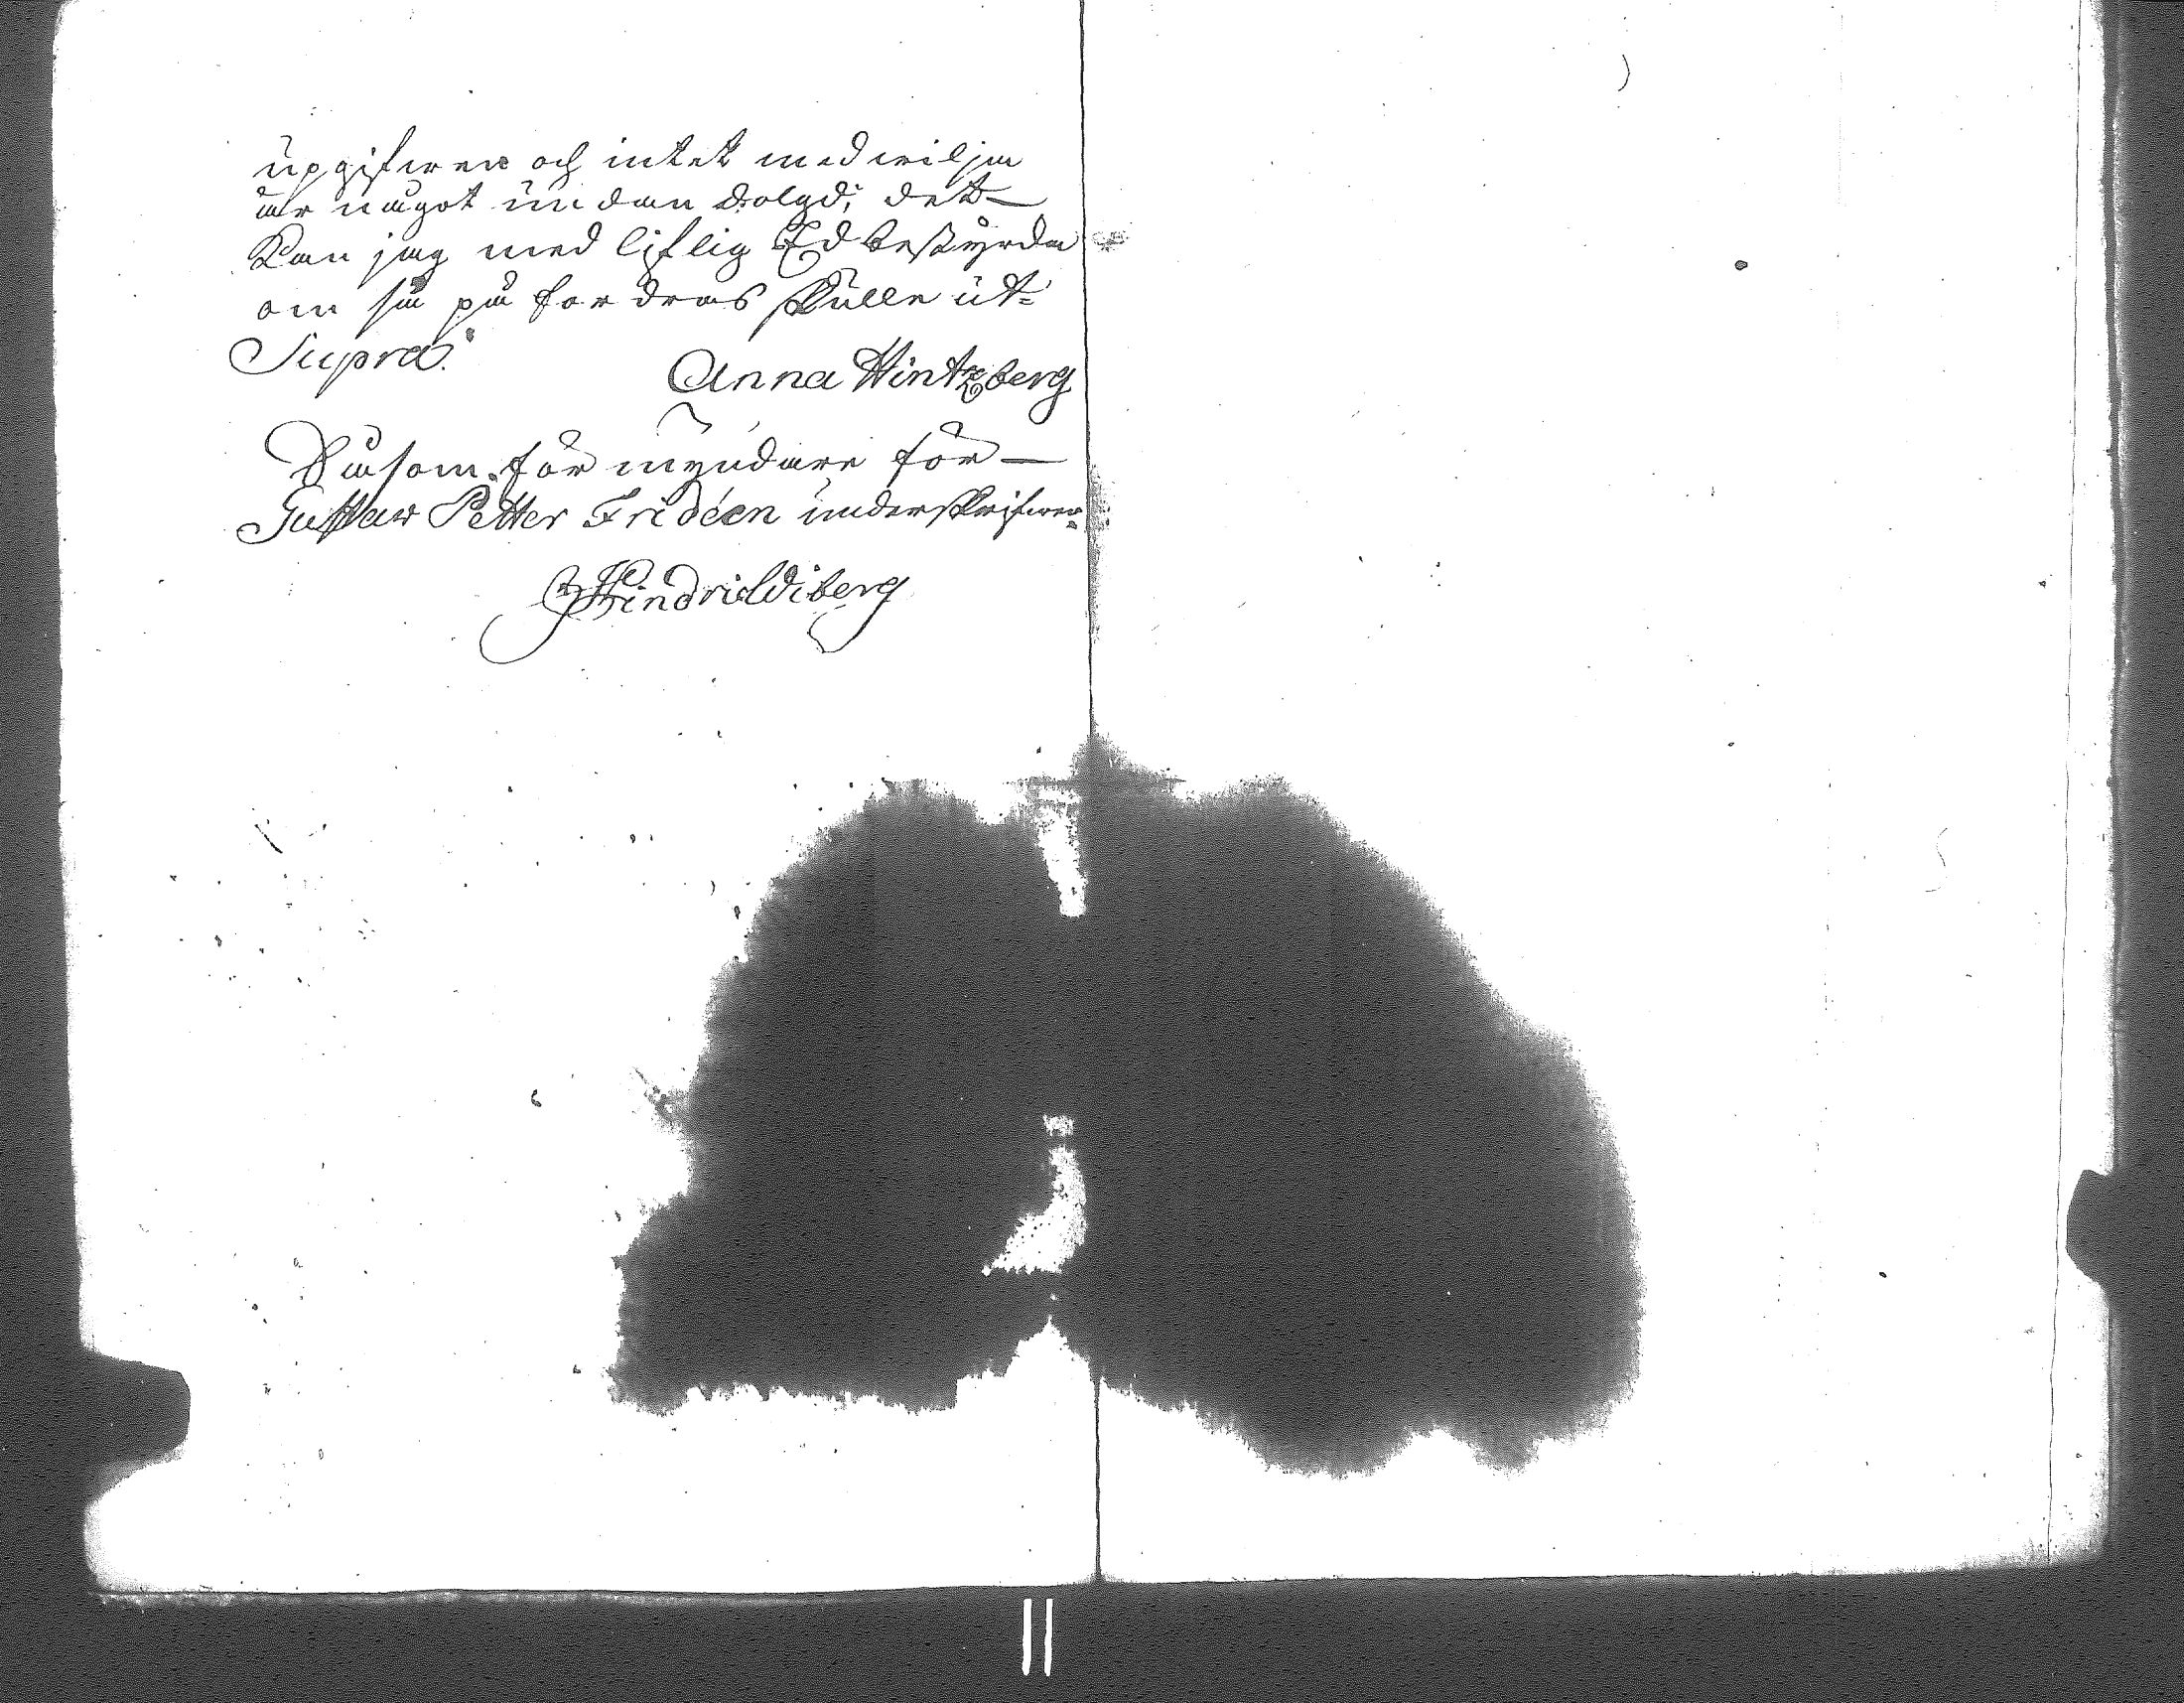 upgifwen och intet med wilja
är något undan dolgd; det
Kan jag med liflig Ed bestyrcka
om så på fordras skulle ut=
Supra.
Anna Wintzberg
Såsom förmyndare för
Gustaw Petter Fridéen underskrifwer
Hindric Wiberg